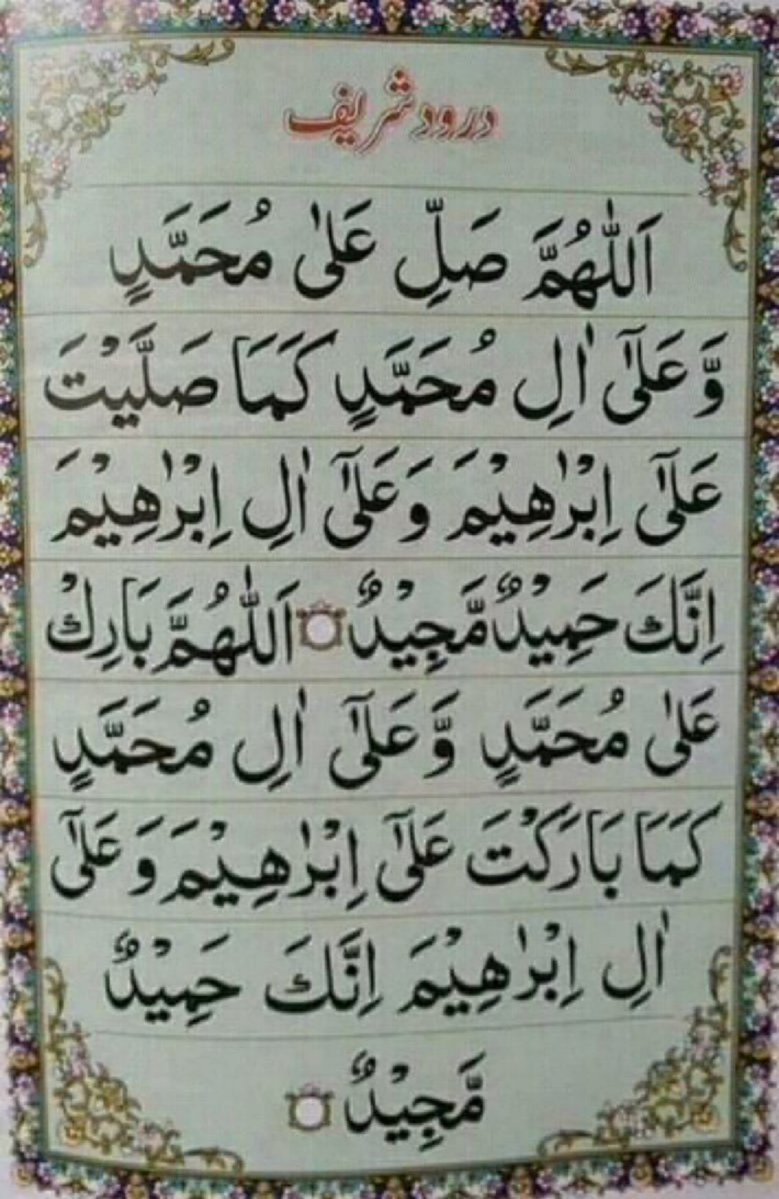 درود شریف
اَللّٰهُمَّ صَلِّ عَلٰى مُحَمَّدٍ
وَّ عَلٰٓى اٰلِ مُحَمَّدٍ كَمَا صَلَّيْتَ
عَلٰٓى اِبْرٰهِيْمَ وَ عَلٰٓى اٰلِ اِبْرٰهِيْمَ
اِنَّكَ حَمِيْدٌ مَّجِيْدٌ ۝ اَللّٰهُمَّ بَارِكْ
عَلٰى مُحَمَّدٍ وَّ عَلٰٓى اٰلِ مُحَمَّدٍ
كَمَا بَارَكْتَ عَلٰٓى اِبْرٰهِيْمَ وَ عَلٰٓى
اٰلِ اِبْرٰهِيْمَ اِنَّكَ حَمِيْدٌ
مَّجِيْدٌ ۝